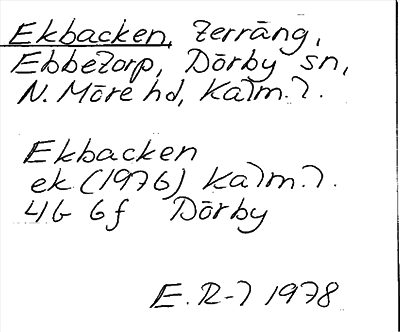 Ekbacken, terräng,
Ebbetorp, Dörby sn,
N. Möre hd, Kalm. l.
Ekbacken
ek (1976) Kalm. l.
4G 6f Dörby
E. R-l 1978